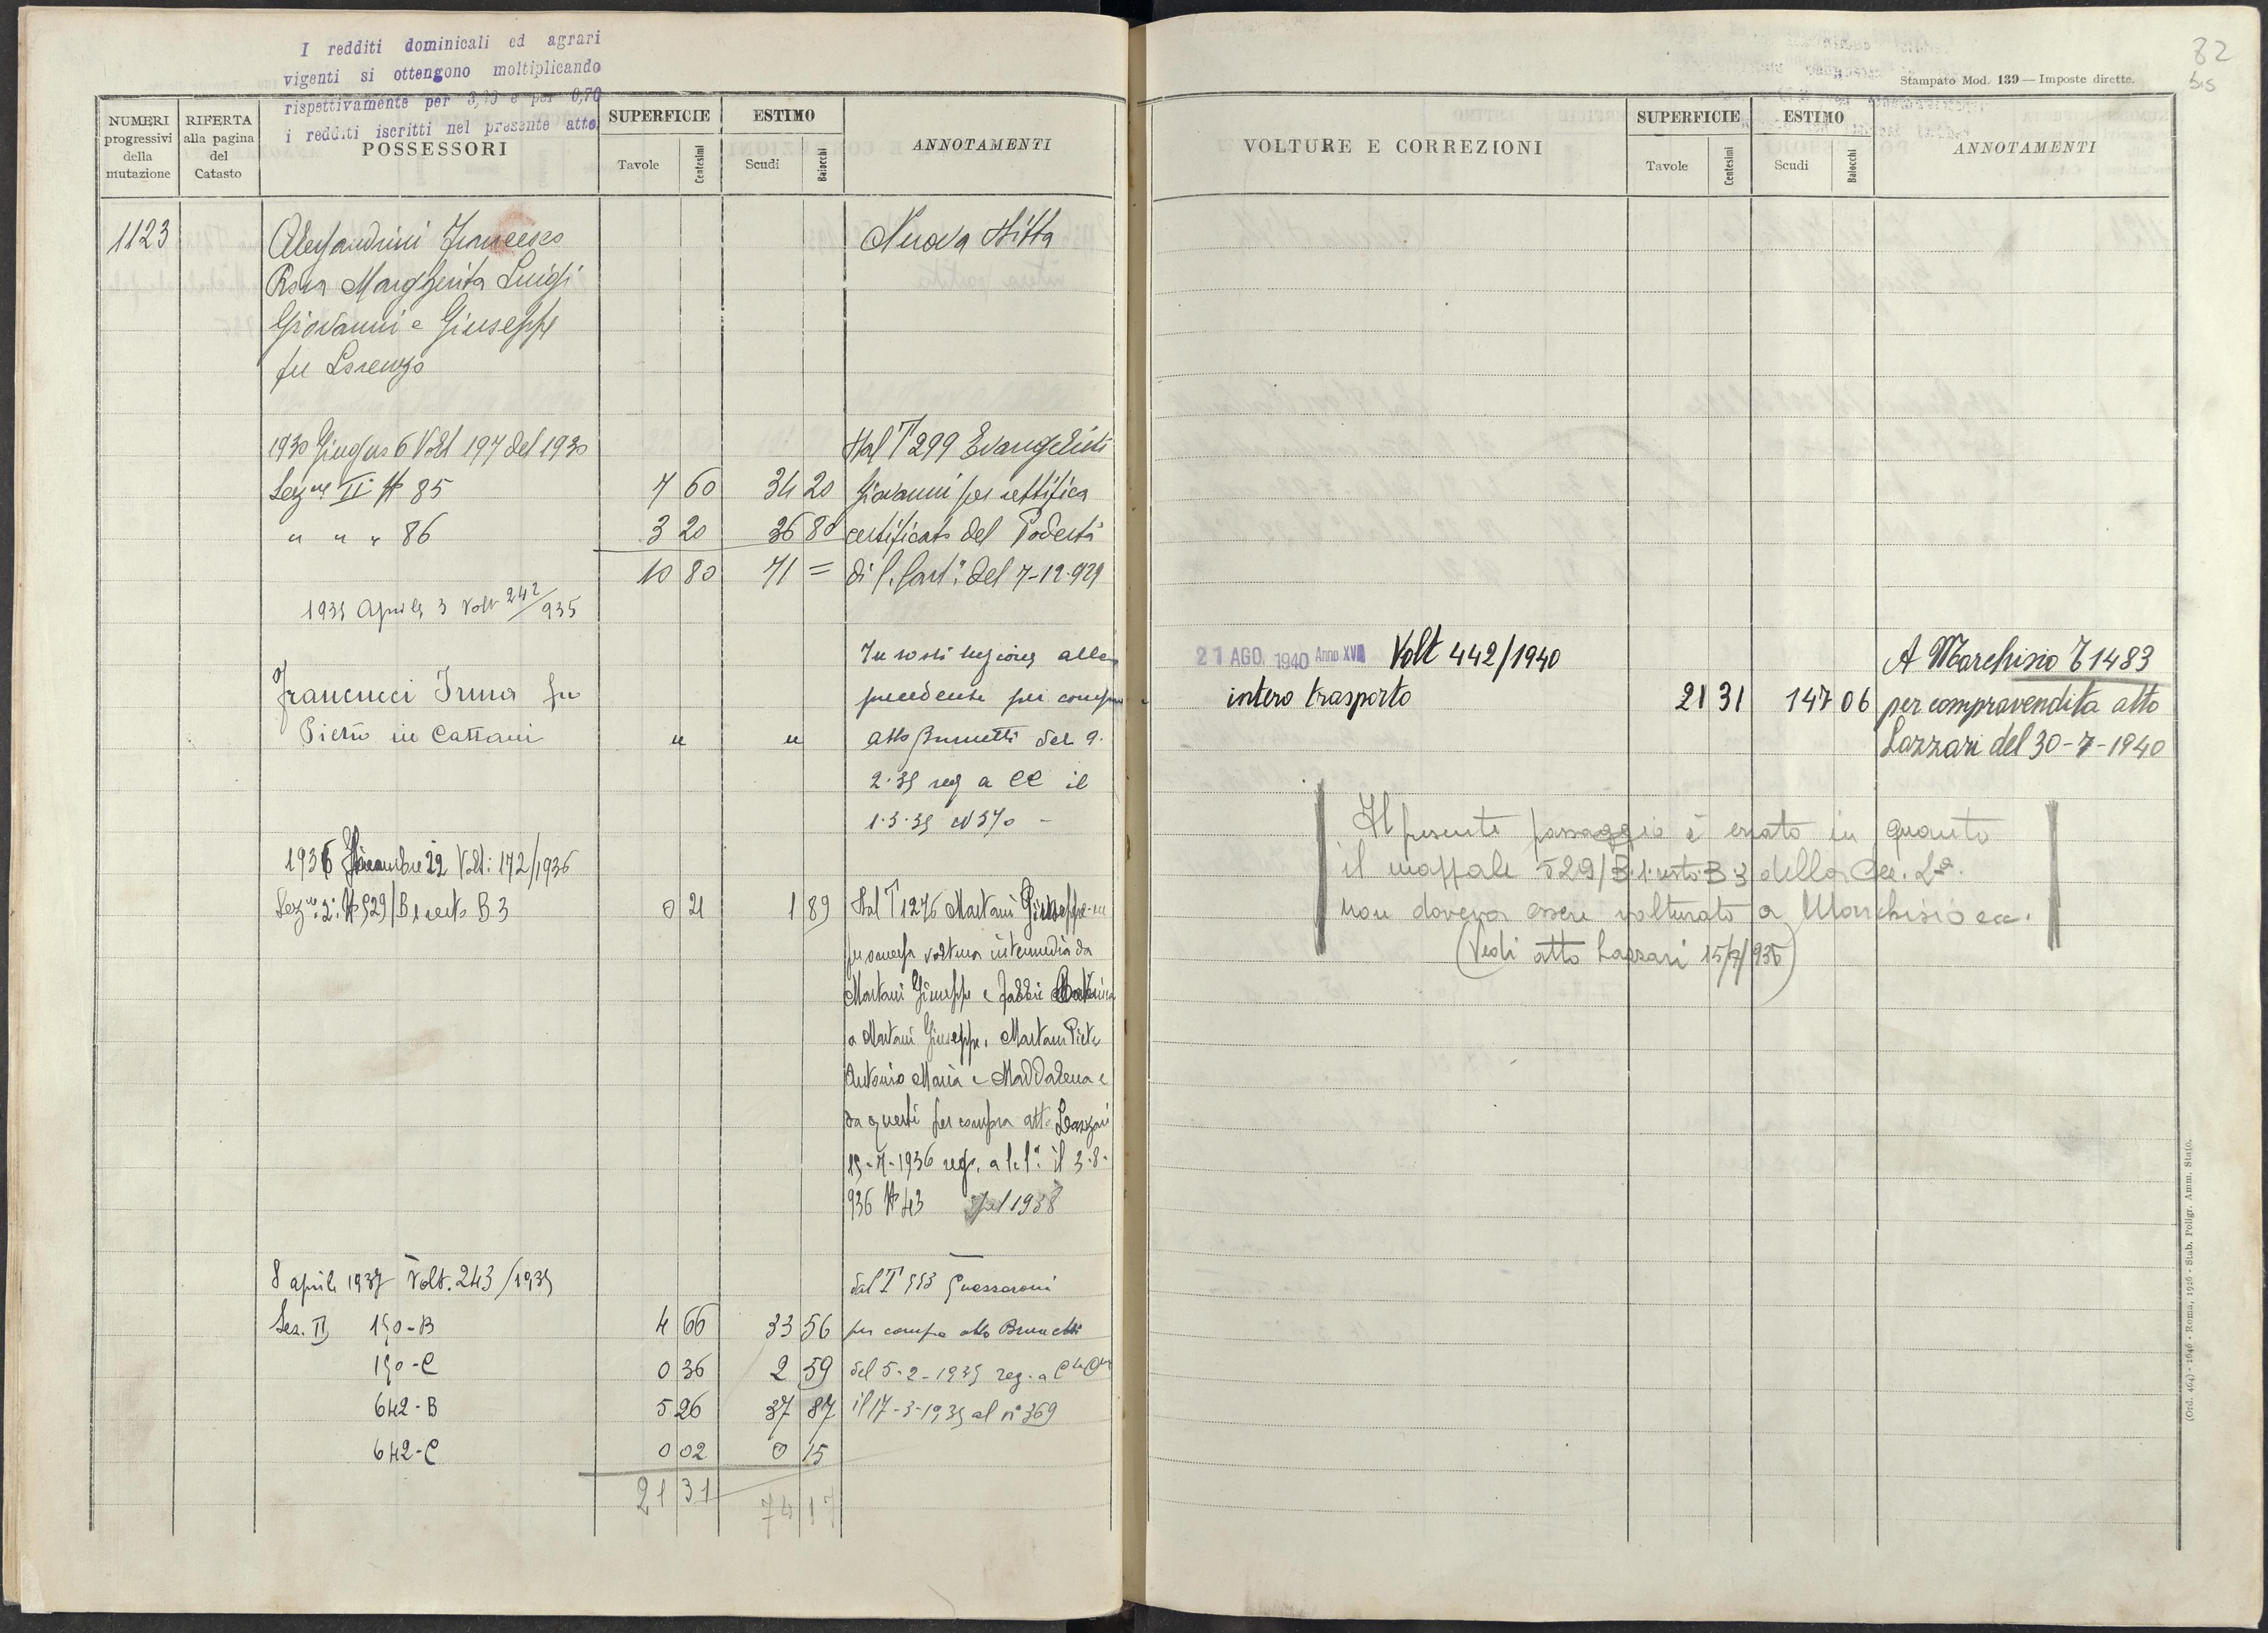 I redditi dominicali ed agrari
vigenti si ottengono moltiplicando
rispettivamente per e per 0,70
i redditi iscritti nel presente atto
NUMERI progressivi della mutazione
RIFERTA alla pagina del Catasto
POSSESSORI
SUPERFICIE
Tavole Centesimi
ESTIMO
Scudi Baiocchi
ANNOTAMENTI
1123
Alessandrini Francesco
Rosa Margherita Luigi
Giovanni e Giuseppe
fu Lorenzo
Nuova Ditta
1930 Giugno 6 Volt 197 del 1930
Sezne II N 85 7 60 34 20
" " " 86 3 20 36 80
10 80 71 =
Dal T 299 Evangelisti
Giovanni per rettifica
certificato del Podestà
di del 7-12-929
1935 Aprile 3 Volt 242/935
Francucci Irma fu
Pietro in Cattani " "
In sostituzione alla
precedente per compra
atto Brunetti del 9.
2.35 reg a CC il
1.3.35 N 370 -
1936 Dicembre 22 Volt: 172/1936
Sezne: 2ª N 529/B1 resto B3 0 21 1 89
Dal T 1276 Martani Giuseppe
per omessa voltura intermedia da
Martani Giuseppe e Fabbri
a Martani Giuseppe, Martani Pietro
Antonio Maria e Maddalena e
da questi per compra atto Lazzari
15-7-1936 reg. a il 3-8-
936 N 43 1938
8 aprile 1937 Volt. 243/1935
Sez. II 150-B 4 66 33 56
150-C 0 36 2 59
642-B 5 26 37 87
642-C 0 02 0 15
21 31 74 17
dal T 553
per compra atto Brunetti
del 5-2-1935 reg. a
il 17-3-1935 al n° 369
82
bis
Stampato Mod. 139 — Imposte dirette.
VOLTURE E CORREZIONI
SUPERFICIE
Tavole Centesimi
ESTIMO
Scudi Baiocchi
ANNOTAMENTI
21 AGO. 1940 Anno XVIII Volt 442/1940
intero trasporto 21 31 147 06
A Marchisio T 1483
per compravendita atto
Lazzari del 30-7-1940
Il presente passaggio è errato in quanto
il mappale 529/B.1.resto B3 della Sez. 2ª.
non doveva essere volturato a Marchisio ecc.
(Vedi atto Lazzari 15/7/936)
(Ord. 464) - 1646 - Roma, 1926 - Stab. Poligr. Amm. Stato.